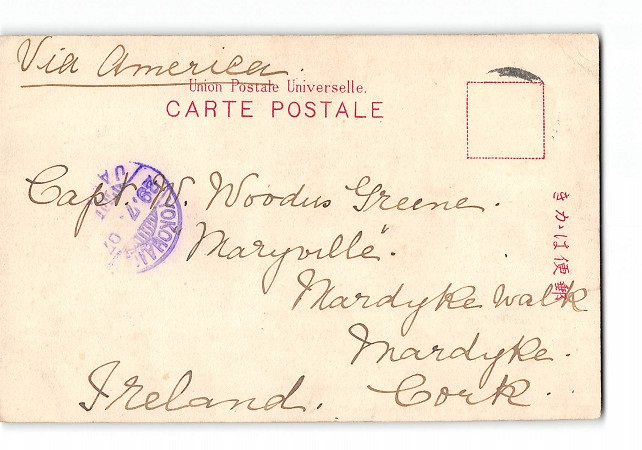 Via America.
Union Postale Universelle.
CARTE POSTALE
Capt. W. Woodus Greene.
Maryville.
Mardyke Walk
Mardyke.
Ireland. Cork.
きかは便郵
YOKOHAMA
29.7.07